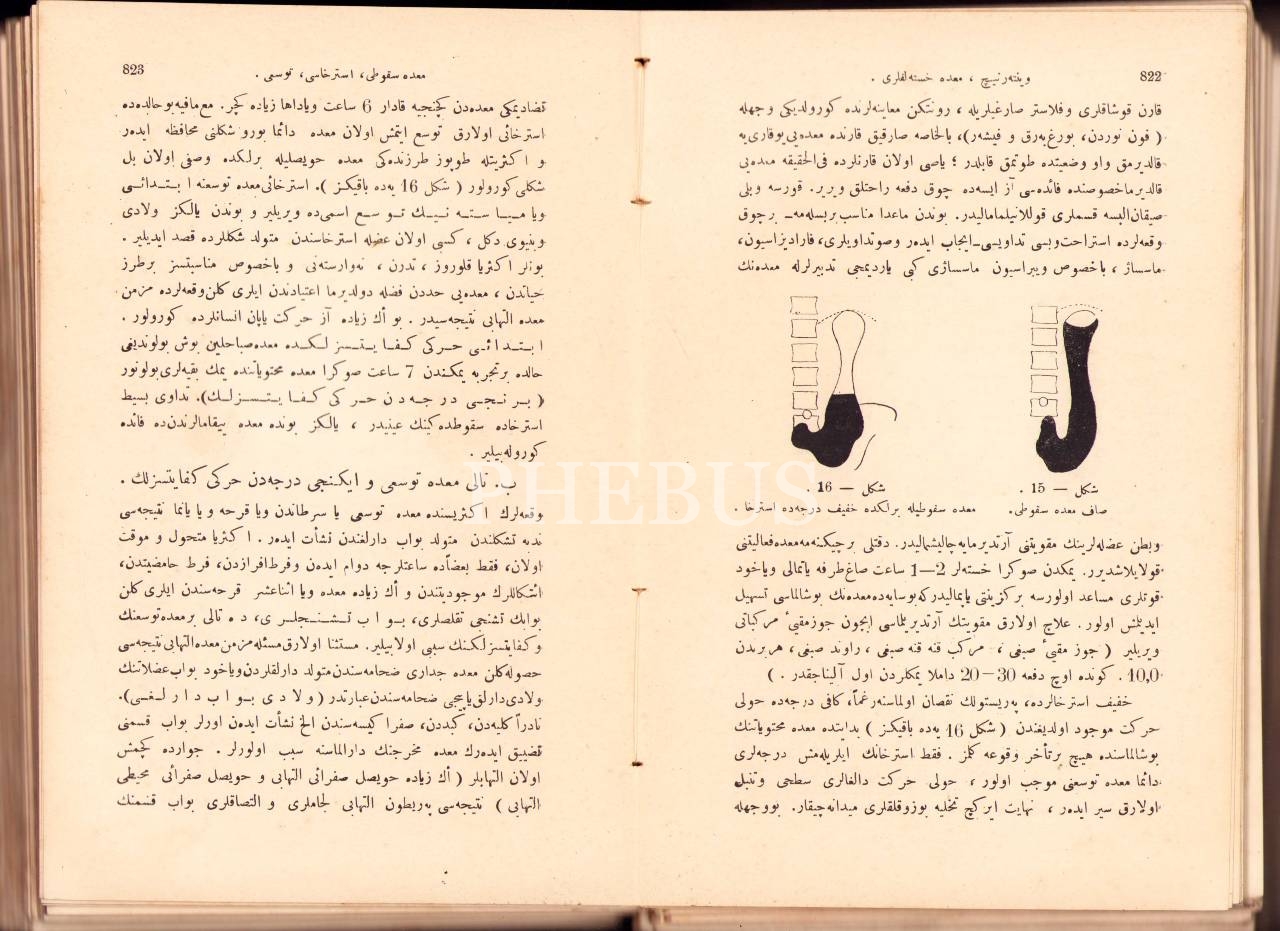 822
وینته‌رنیچ ، معده خسته‌لقلری .
قارن قوشاقلری وفلاستر صارغیلریله ، رونتکن معاینه‌لرنده کورولدیکی وجهله
( فون نوردن، بورغ‌به‌رق و فیشه‌ر)، بالخاصه صارقیق قارنده معده‌یی یوقاری‌یه
قالدیرمق واو وضعیتده طوتمق قابلدر ؛ یاصی اولان قارنلرده فی‌الحقیقه معده‌یی
قالدیرماخصوصنده فائده‌سی آز ایسه‌ده چوق دفعه راحتلق ویریر. قورسه وبلی
صیقان البسه قسملری قوللانیلمامالیدر. بوندن ماعدا مناسب بربسله‌مه ـ برچوق
وقعه‌لرده استراحت وبسی تداویسی ـ ایجاب ایده‌ر وصوتداویلری، فارادیزاسیون،
ماساژ ، باخصوص ویبراسیون ماساژی کبی یاردیمجی تدبیرلرله معده‌نك
شکل — 15 .
صاف معده سقوطی.
شکل — 16 .
معده سقوطیله برلکده خفیف درجه‌ده استرخا .
وبطن عضله‌لرینك مقویتنی آرتدیرمایه‌چالیشمالیدر. دقتلی برچیکنه‌مه‌معده‌فعالیتنی
قولایلاشدیرر. یمکدن صوکرا خسته‌لر 2—1 ساعت صاغ‌طرفه یاتمالی ویاخود
قوتلری مساعد اولورسه برکزینتی یاپمالیدرکه‌بوسایه‌ده‌معده‌نك بوشالماسی تسهیل
ایدیلمش اولور . علاج اولارق مقویتك آرتدیریلماسی ایچون جوزمقیٴ مرکباتی
ویریلیر ( جوز مقیٴ صبغی ، مرکب قنه قنه صبغی ، راوند صبغی ، هربرندن
10,0. کونده اوچ دفعه 30—20 داملا یمکلردن اول آلیناجقدر . )
خفیف استرخالرده، په‌ریستولك نقصان اولماسنه‌رغماً، کافی درجه‌ده حولی
حرکت موجود اولدیغندن ( شکل 16 یه‌ده باقیکز ) بدایتده معده محتویاتنك
بوشالماسنده هیچ برتأخر وقوعه کلمز . فقط استرخانك ایلریله‌مش درجه‌لری
دائما معده توسعنی موجب اولور ، حولی حرکت دالغالری سطحی وتنبل
اولارق سیر ایده‌ر ، نهایت ایرکچ تخلیه بوزوقلقلری میدانه‌چیقار. بووجهله
823
معده سقوطی، استرخاسی، توسعی .
قضادیمکی معده‌دن کچنجیه قادار 6 ساعت ویاداها زیاده کچر. مع‌مافیه‌بوحالده‌ده
استرخائی اولارق توسع ایتمش اولان معده دائما بورو شکلنی محافظه ایده‌ر
و اکثریتله طوپوز طرزنده‌کی معده حویصلیله برلکده وصفی اولان بل
شکلی کورولور ( شکل 16 یه‌ده باقیکز ). استرخائی معده توسعنه ابـتـدائـی
ویا مـیـا سـتـه نـیـك تـوسـع اسمی‌ده ویریلیر و بوندن یالکز ولادی
وبنیوی دکل ، کسبی اولان عضله استرخاسندن متولد شکللرده قصد ایدیلیر .
بونلر اکثریا قلوروز ، تدرن ، نه‌وراسته‌نی و باخصوص مناسبتسز برطرز
حیاتدن ، معده‌یی حددن فضله دولدیرما اعتیادندن ایلری کلن‌وقعه‌لرده مزمن
معده التهابی نتیجه‌سیدر . بو اك زیاده آز حرکت یاپان انسانلرده کورولور .
ابـتـدائـی حـرکی کـفـایـتـسـزلـکـده معده‌صباحلین بوش بولوندیغی
حالده برتجربه یمکندن 7 ساعت صوکرا معده محتویاتنده یمك بقیه‌لری‌بولونور
( بـرنـجـی درجـه‌دن حـرکی کـفـایـتـسـزلـك). تداوی بسیط
استرخاده سقوطده‌کینك عینیدر ، یالکز بونده معده ییقامالرندن‌ده فائده
کوروله‌بیلیر .
ب. تالی معده توسعی و ایکنجی درجه‌دن حرکی کفایتسزلك .
وقعه‌لرك اکثریسنده معده توسعی یا سرطاندن ویا قرحه و یا یانما نتیجه‌سی
ندبه تشکلندن متولد بواب دارلغندن نشأت ایده‌ر . اکثریا متحول و موقت
اولان، فقط بعضاًده ساعتلرجه دوام ایده‌ن وفرط‌افرازدن، فرط حامضیتدن،
انشکاللرك موجودیتندن و اك زیاده معده ویا اثناعشر قرحه‌سندن ایلری کلن
بوابك تشنجی تقلصلری، بـواب تـشـنـجـلـری، ده تالی برمعده‌توسعنك
وکفایتسزلکنك سببی اولابیلیر. مستثنا اولارق‌مسئله‌مزمن‌معده‌التهابی‌نتیجه‌سی
حصوله‌کلن معده جداری ضخامه‌سندن‌متولد دارلقلردن‌ویاخود بواب‌عضلاتنك
ولادی‌دارلق‌یاپیجی ضخامه‌سندن‌عبارتدر (ولادی بـواب دارلـغـی).
نادراً کلیه‌دن، کبددن، صفرا کیسه‌سندن الخ نشأت ایده‌ن اورلر بواب قسمنی
تضییق ایده‌رك معده مخرجنك دارالماسنه سبب اولورلر . جوارده کچمش
اولان التهابلر ( اك زیاده حویصل صفرائی التهابی و حویصل صفرائی محیطی
التهابی ) نتیجه‌سی په‌ریطون التهابی لجاملری و التصاقلری بواب قسمنك
PHEBUS